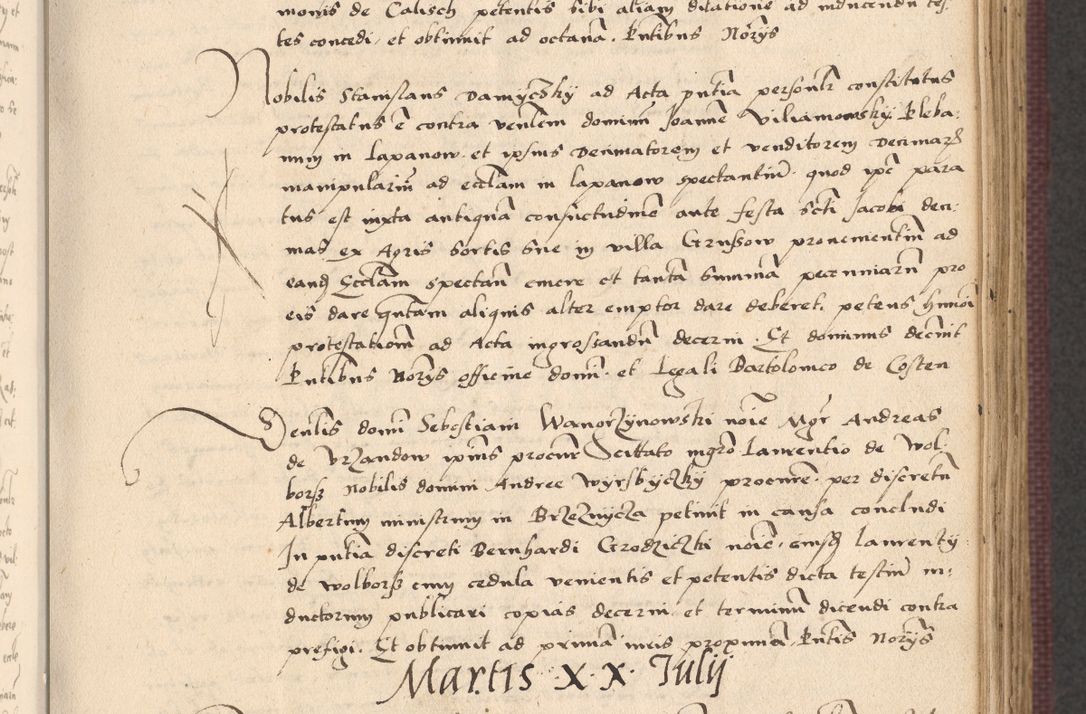 monis de Calisch petentis sibi aliam dilatione ad inducendu tes
tes concedi et obtinuit ad octava. Pntibus Norys
Nobilis Stanislaus Damyczky ad Acta pntia personlr constitutus
protestatus e contra venlem dominu Joanne Viliamowsky Pleba:
num in Lapanow et ipsius Decimatorem et venditorem Decimar
manipulariu ad ecclam in lapanow spectantiu. quod ipe para
tus est iuxta antiqua consuetudine ante festa scti Jacobi deci:
mas ex Agris Sortis sue in villa Grussow provenientiu ad
eand Ecclam spectan emere et tanta summa pecuniaru pro
eis dare qntam aliquis alter emptor dare deberet. petens hmoi
protestatiom ad Acta ingrossandu decerni. Et dominus decrevit
Pntibus Norys officine domi. et Legali Bartolomeo de Costen
Venlis domi Sebestiani Wanorzynowski noie Mgr Andreas
de Urzandow ipius procur citato mgro Laurentio de Wol:
bors Nobilis domini Andree Wyrsbyczky procure. per discretu
Albertum ministrum in Brzeznycza petiuit in causa concludi
In pntia discreti Bernhardi Grodziczki noie. eiusd laurenty:
de wolbors cum cedula venientis et petentis dicta testiu in:
ductorum publicari copias decerni et terminu dicendi contra
prefigi. Et obtinuit ad prima iuris proxima. Pntis Norys
Martis X X July